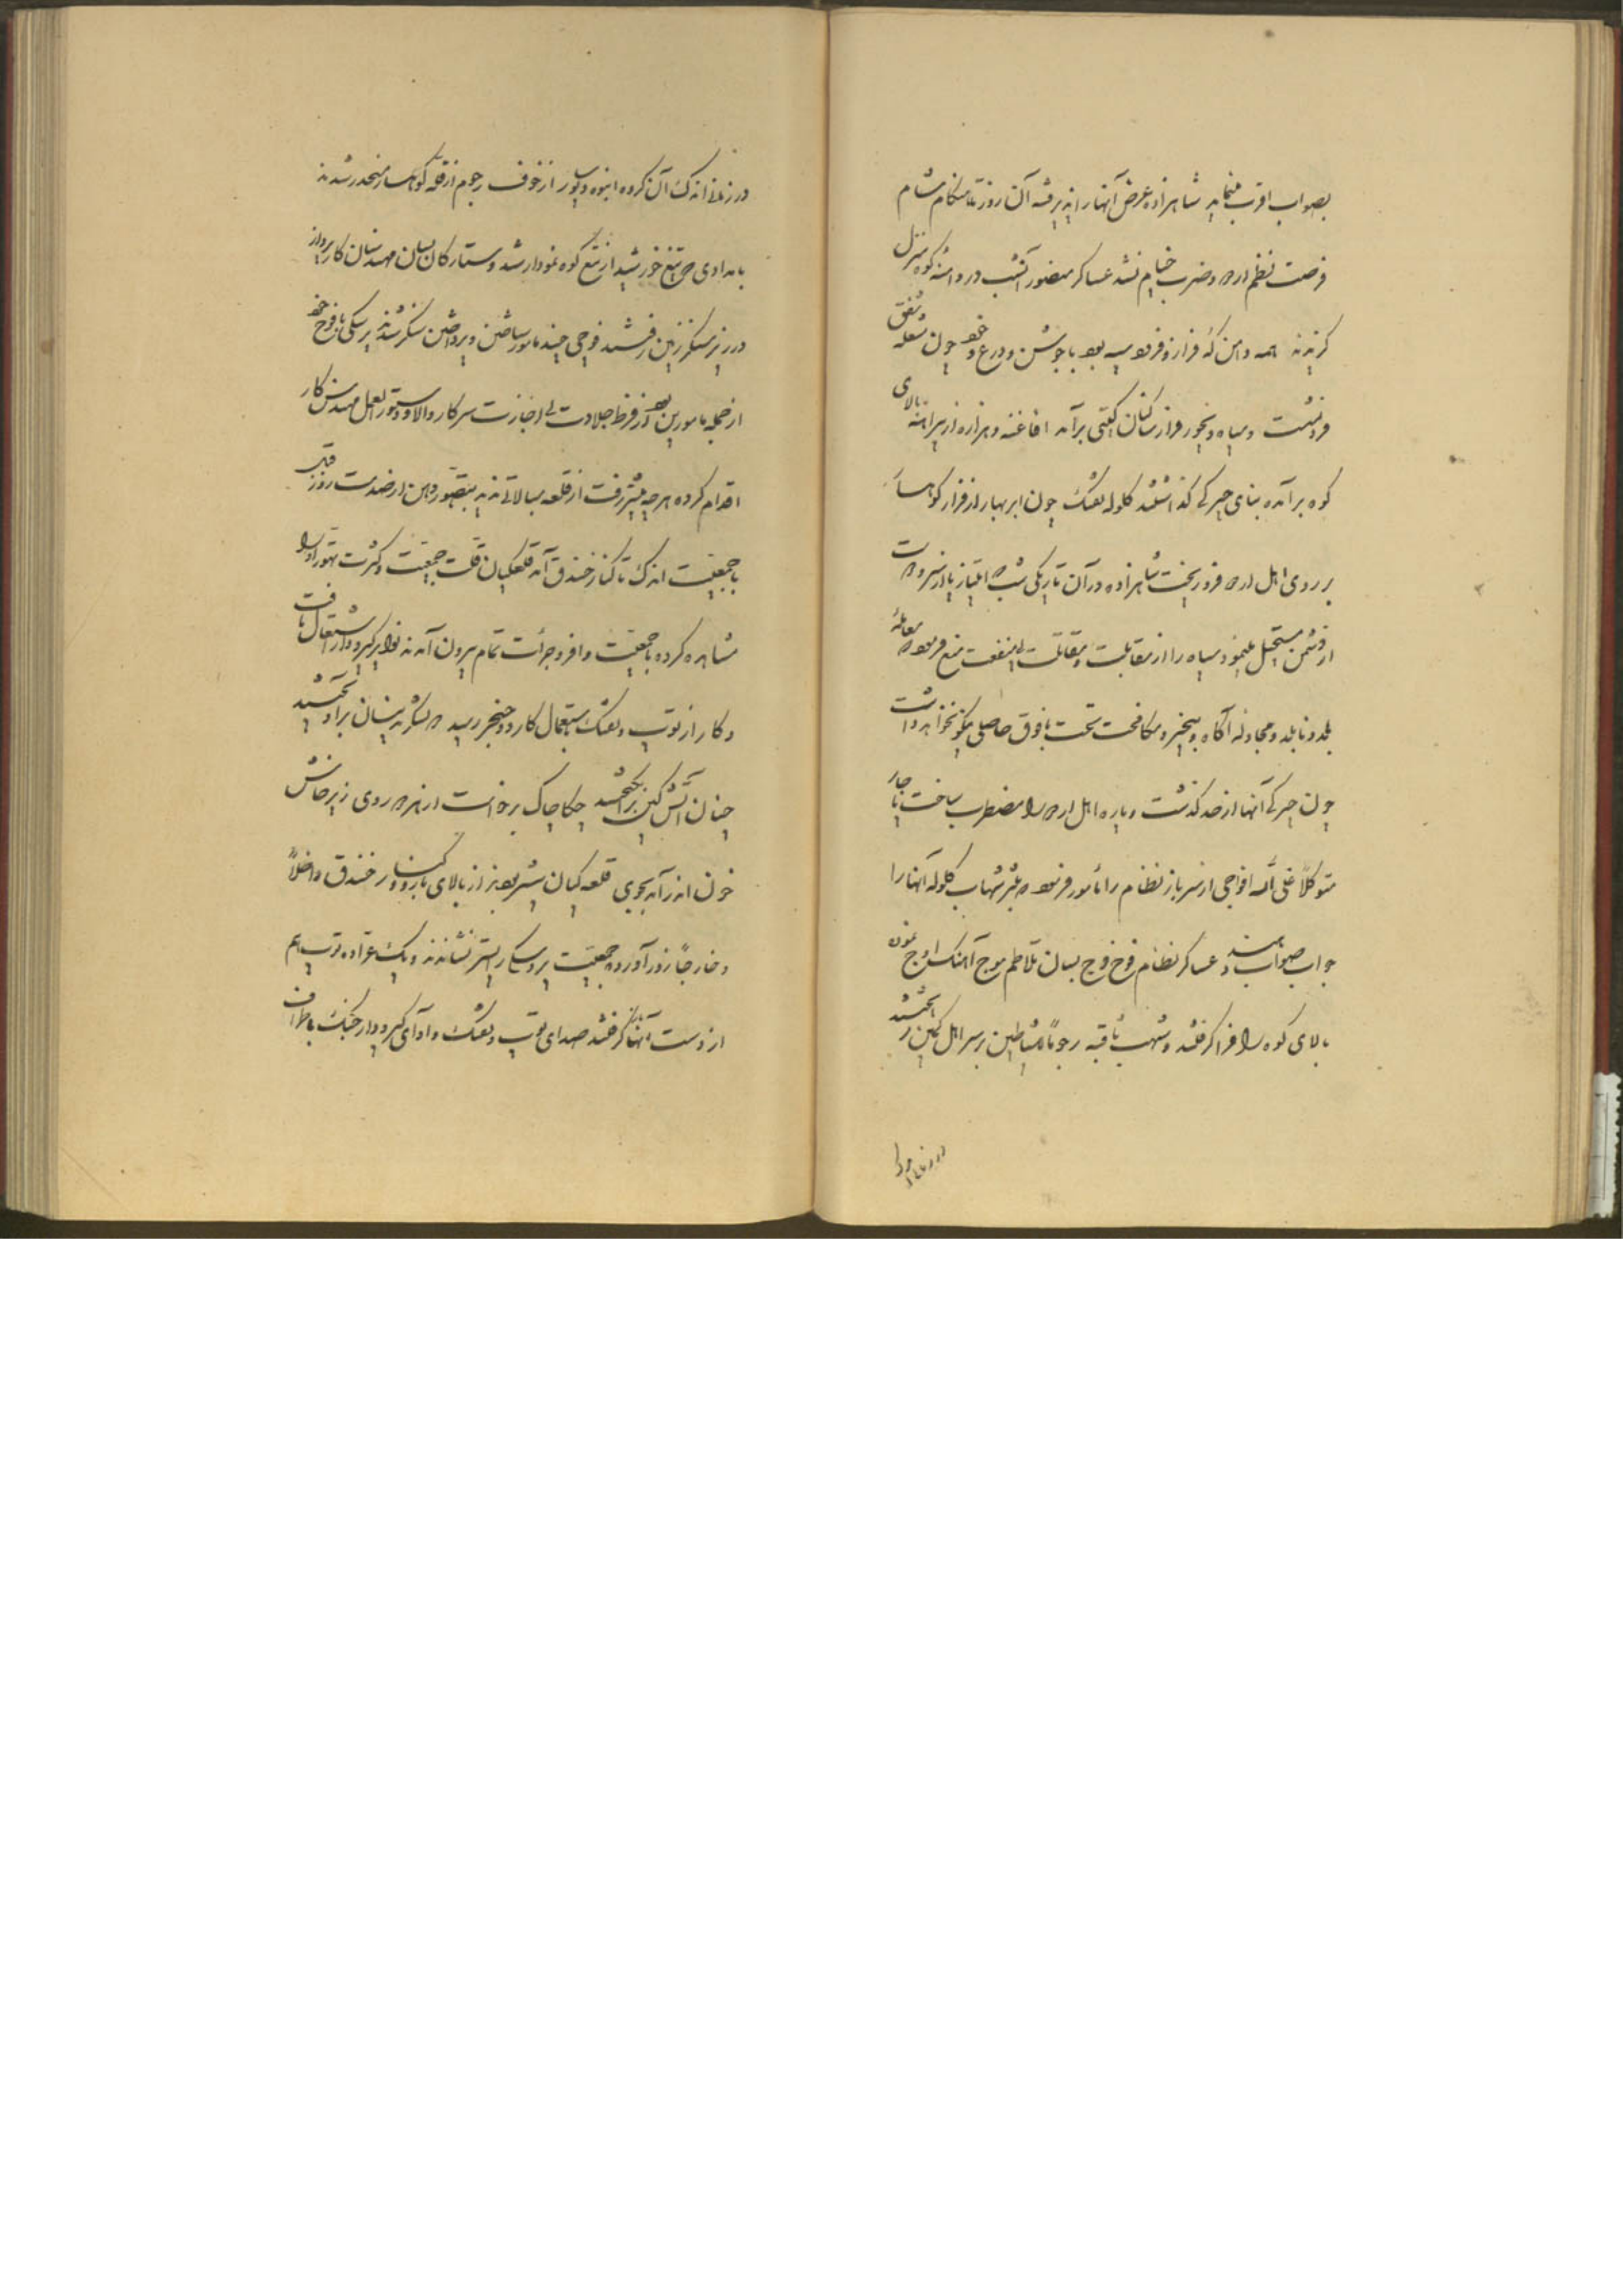 بصواب اقرب مینماید شاهزاده عرض آنها را پذیرفته آن روز تا هنکام شام
فرصت نظم اردو و ضرب خیام نشد عساکر منصور آنشب در دامنه کوه منزل
کزیدند همه دامن که فراز و فرود سپه بود با جوشن و درع و خود چون شعله شفق
فرونشست و سپاه دیجور فراز کتی برآمد افاغنه و هزاره از پیرامنه بالای
کوه برآمده بنای چیرکی کذاشتند کلوله تفنک چون ابر بهار از فراز کوهسار
بر روی اهل اردو فرو ریخت شاهزاده در آن تاریکی شب که امتیاز یار از سروت
از دشمن مستحیل مینمود سپاه را از مقابلت و مقاتلت بی منفعت منع فرمود که معامله
بلد و نابلد و مجادله آکاه و بیخبر و مکافحت تحت با فوق حاصلی نیکو نخواهد داشت
چون چیرکی آنها از حد کذشت و پاره اهل اردو را مضطرب ساخت ناچار
متوکلاً علی الله افواجی از سرباز نظام را مأمور فرمود که بشهاب کلوله آنها را
جواب صواب دهند عساکر نظام فوج فوج بسان تلاطم موج آهنک اوج نموده
بالای کوه را فرا کرفتند و شهب ثاقبه رجوماً للشیاطین بر سر اهل کمین ریختند
در زمان اندک
در زمان اندک آن کروه انبوه و دیو سار از خوف رجوم از قله کوهسار منحدر شدند
بامدادی که تیغ خورشید از تیغ کوه نمودار شد و ستارکان بسان مهندسان کار پرداز
در زیر سنکر زمین رفتند فوجی چند مامور ساختن و پرداختن سنکر شدند بیکی با فوج خود
از جمله مامورین بود از فرط جلادت بی اجازت سرکار والا و دستور العمل مهندس کار
اقدام کرده هر چه پیشتر رفت از قلعه مبالاتی ندید بتصور وهن از ضدمت روز قبل
با جمعیت اندک تا کنار خندق آمد قلعکیان قلت جمعیت و کثرت تهور او را
مشاهده کرده با جمعیت وافر و جرأت تمام بیرون آمدند نوایر کیر و دار اشتعال یافت
و کار از توپ و تفنک باستعمال کارد و خنجر رسید دو لشکر بدینسان برآویختند
چنان آتش کین برانکیختند چکاچاک برخاست از هر دو روی ز پرخاش
خون اندر آمد بجوی قلعه کیان شریر نیز از بالای بارو و کنار خندق داخلاً
و خارجاً زور آورده جمعیت بروسکی را پستر نشاندند و یک عراده توپ هم
از دست آنها کرفتند صدای توپ و تفنک و آوای کیر و دار جنک باطراف